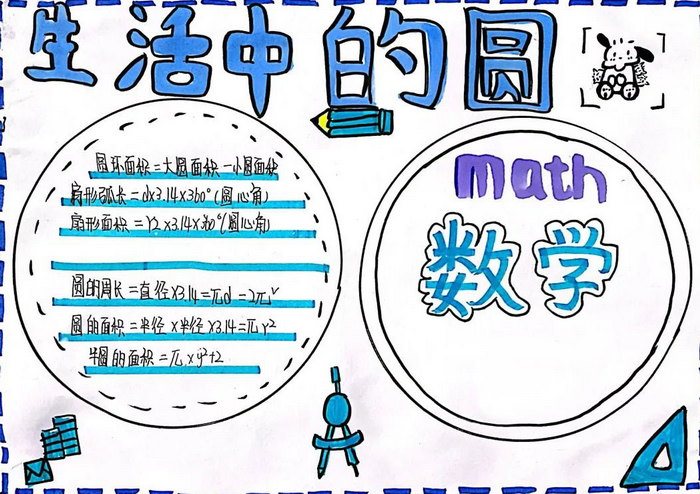 生活中的圆
圆环面积=大圆面积-小圆面积
扇形弧长=d×3.14×360°(圆心角)
扇形面积=r2×3.14×360°(圆心角)
圆的周长=直径×3.14=πd=2πr
圆的面积=半径×半径×3.14=πr2
半圆的面积=π×r2÷2
math
数学